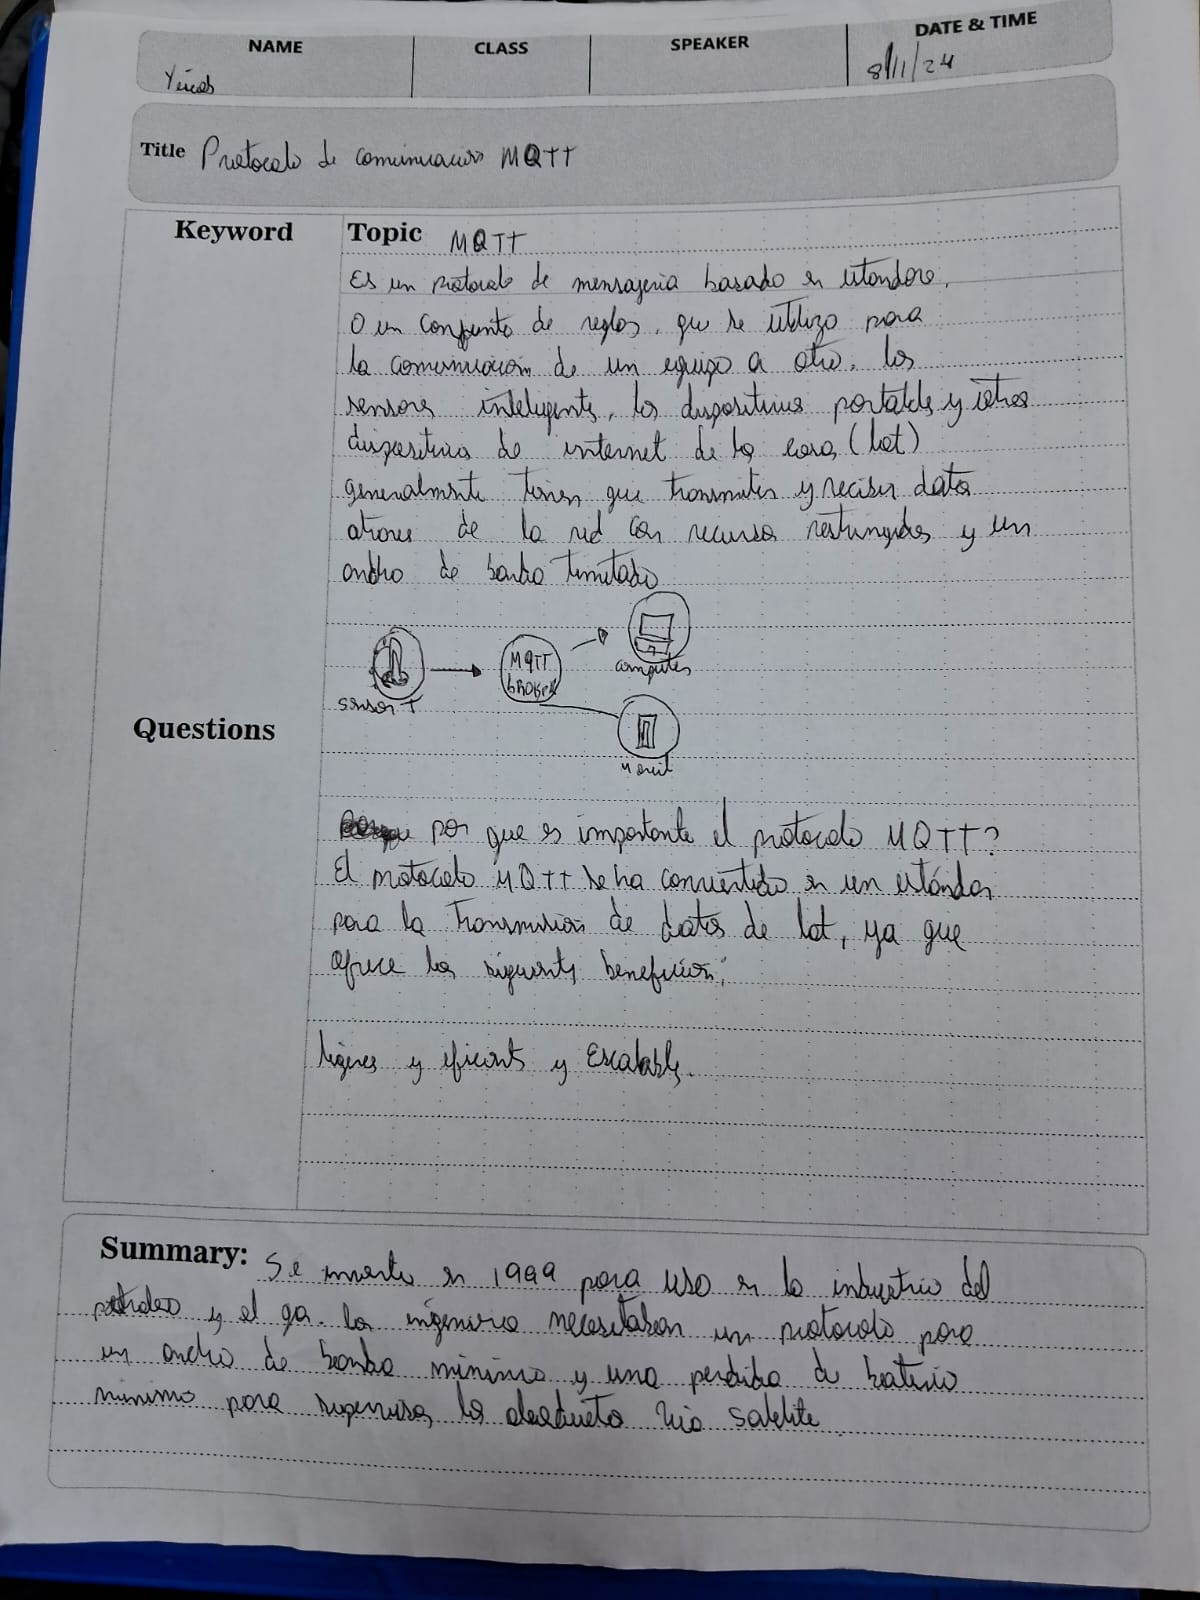 NAME CLASS SPEAKER DATE & TIME
8/11/24
Title Protocolo de comunicacion MQTT
Keyword
Topic MQTT
Es un protocolo de mensajeria basado en estandare,
O un conjunto de reglas, que se utiliza para
la comunicación de un equipo a otro. los
sensores inteligents, los dispositivos portatels y otros
dispositivos de internet de la cosa, (Iot)
generalmente tienen que transmiter y recibir datos
atraves de la red con recursos restringidos y un
ancho de banda limitado
sensor T
MQTT
broker
computer
Movil
Questions
por que es importante el protocolo MQTT?
El protocolo MQTT se ha convertido en un estándar
para la transmision de datos de Iot, ya que
ofrece los siguients beneficios:
ligeros y eficients y Escalable.
Summary: Se invento en 1999 para uso en la industria del
petroleo y el ga. los ingeniero necesitaban un protocolo para
un ancho de banda minimo y una perdida de bateria
minimo para supervisar los oleoducto via satelite